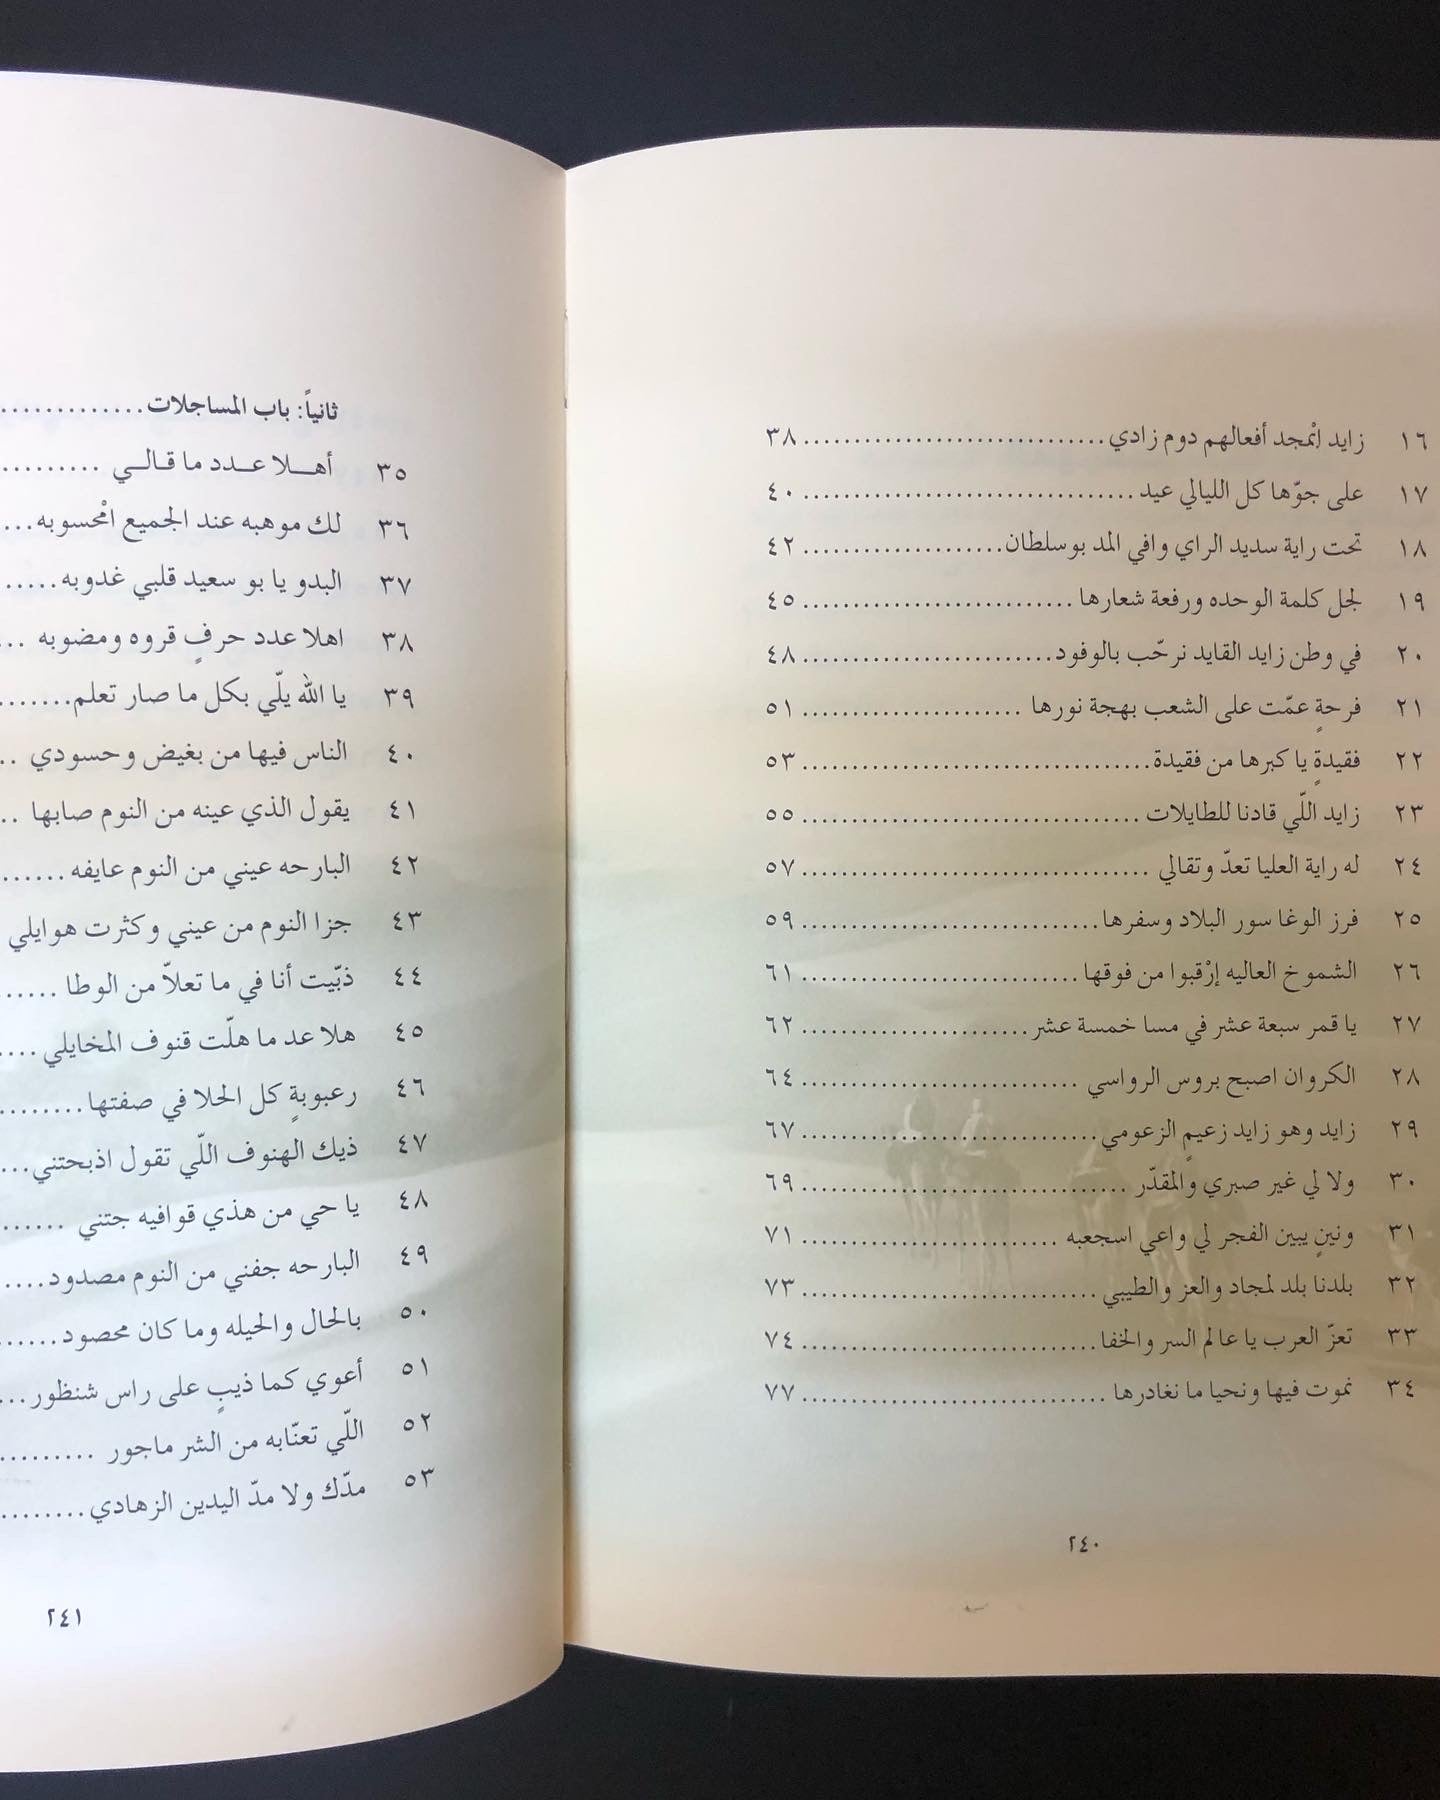 ١٦ زايد امْجد أفعالهم دوم زادي .............................. ٣٨
١٧ على جوّها كل الليالي عيد .................................. ٤٠
١٨ تحت راية سديد الراي وافي المد بوسلطان .................... ٤٢
١٩ لجل كلمة الوحده ورفعة شعارها ........................... ٤٥
٢٠ في وطن زايد القايد نرحّب بالوفود ......................... ٤٨
٢١ فرحةٍ عمّت على الشعب بهجة نورها ...................... ٥١
٢٢ فقيدةٍ يا كبرها من فقيدة ................................... ٥٣
٢٣ زايد اللّي قادنا للطايلات .................................. ٥٥
٢٤ له راية العليا تعدّ وتقالي ................................... ٥٧
٢٥ فرز الوغا سور البلاد وسفرها .............................. ٥٩
٢٦ الشموخ العاليه إرْقبوا من فوقها ............................ ٦١
٢٧ يا قمر سبعة عشر في مسا خمسة عشر ....................... ٦٢
٢٨ الكروان اصبح بروس الرواسي ............................ ٦٤
٢٩ زايد وهو زايد زعيمٍ الزعومي .............................. ٦٧
٣٠ ولا لي غير صبري والمقدّر ................................. ٦٩
٣١ ونينٍ يبين الفجر لي واعي اسجعبه .......................... ٧١
٣٢ بلدنا بلد لمجاد والعز والطيبي .............................. ٧٣
٣٣ تعزّ العرب يا عالم السر والخفا .............................. ٧٤
٣٤ نموت فيها ونحيا ما نغادرها ............................... ٧٧
٢٤٠
ثانياً: باب المساجلات .............
٣٥ أهـلا عـدد ما قـالـي ..........
٣٦ لك موهبه عند الجميع امْحسوبه ...
٣٧ البدو يا بو سعيد قلبي غدوبه .....
٣٨ اهلا عدد حرفٍ قروه ومضوبه ...
٣٩ يا الله يلّي بكل ما صار تعلم .......
٤٠ الناس فيها من بغيض وحسودي ..
٤١ يقول الذي عينه من النوم صابها ..
٤٢ البارحه عيني من النوم عايفه ......
٤٣ جزا النوم من عيني وكثرت هوايلي
٤٤ ذبّيت أنا في ما تعلاّ من الوطا ......
٤٥ هلا عد ما هلّت قنوف المخايلي ....
٤٦ رعبوبةٍ كل الحلا في صفتها ........
٤٧ ذيك الهنوف اللّي تقول اذبحتني ...
٤٨ يا حي من هذي قوافيه جتني ......
٤٩ البارحه جفني من النوم مصدود ....
٥٠ بالحال والحيله وما كان محصود ......
٥١ أعوي كما ذيبٍ على راس شنظور ...
٥٢ اللّي تعنّابه من الشر ماجور .........
٥٣ مدّك ولا مدّ اليدين الزهادي ........
٢٤١